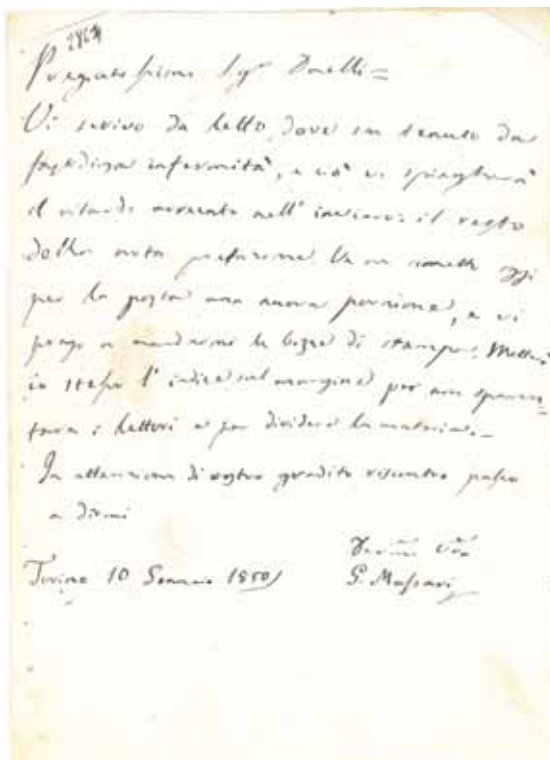 Pregiatissimo Sigr Donelli =
Vi scrivo da letto, dove son tenuto da
fastidiosa infermità, e ciò vi spiegherà
il ritardo avvenuto nell' inviarvi il resto
della nota prefazione. Ve ne rimetto oggi
per la posta una nuova porzione, e vi
prego a mandarmi le bozze di stampa. Mettere
in istesa l' indice sul margine per non spaven=
tare i lettori e per dividere la materia._
In attenzione di vostro gradito riscontro passo
a dirmi
G. Massari
Torino 10 Gennaio 1850